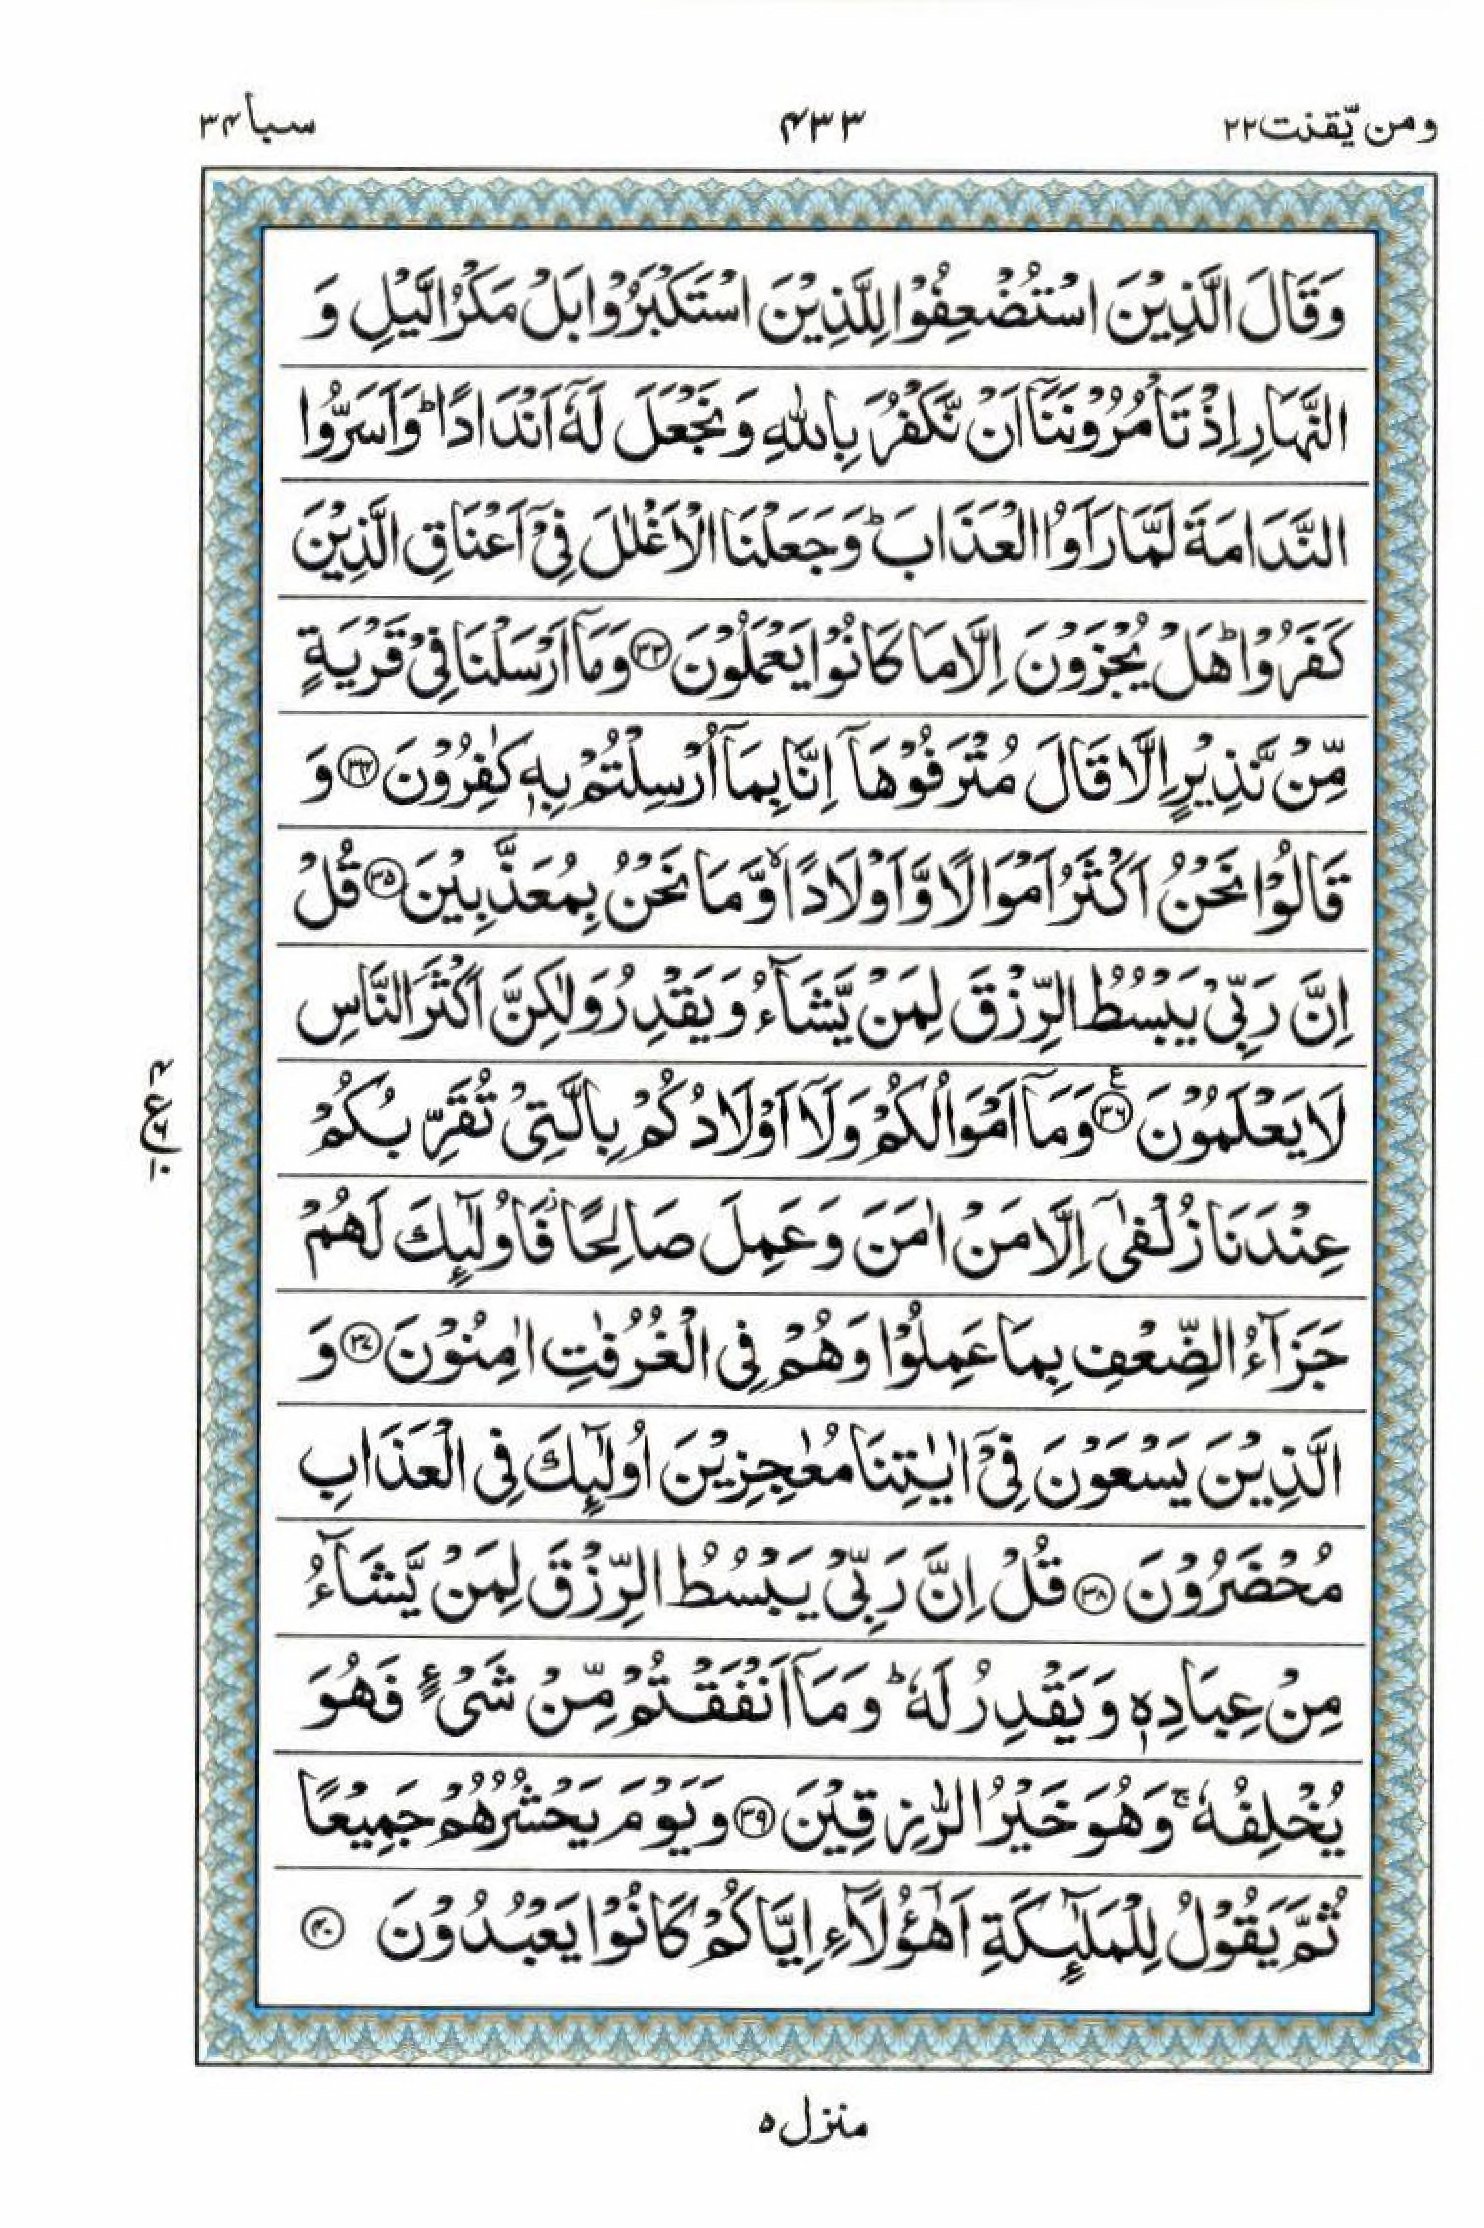 ومن یّقنت ۲۲ ۴۳۳ سبا ۳۴
وَقَالَ الَّذِيْنَ اسْتُضْعِفُوْا لِلَّذِيْنَ اسْتَكْبَرُوْا بَلْ مَكْرُ الَّيْلِ وَ
النَّهَارِ اِذْ تَاْمُرُوْنَنَاۤ اَنْ نَّكْفُرَ بِاللّٰهِ وَ نَجْعَلَ لَهٗۤ اَنْدَادًا ؕ وَاَسَرُّوا
النَّدَامَةَ لَمَّا رَاَوُا الْعَذَابَ ؕ وَجَعَلْنَا الْاَغْلٰلَ فِیْۤ اَعْنَاقِ الَّذِيْنَ
كَفَرُوْا ؕ هَلْ يُجْزَوْنَ اِلَّا مَا كَانُوْا يَعْمَلُوْنَ ﴿۳۳﴾ وَمَاۤ اَرْسَلْنَا فِیْ قَرْيَةٍ
مِّنْ نَّذِيْرٍ اِلَّا قَالَ مُتْرَفُوْهَاۤ اِنَّا بِمَاۤ اُرْسِلْتُمْ بِهٖ كٰفِرُوْنَ ﴿۳۴﴾ وَ
قَالُوْا نَحْنُ اَكْثَرُ اَمْوَالًا وَّ اَوْلَادًا ۙ وَّ مَا نَحْنُ بِمُعَذَّبِيْنَ ﴿۳۵﴾ قُلْ
اِنَّ رَبِّیْ يَبْسُطُ الرِّزْقَ لِمَنْ يَّشَآءُ وَ يَقْدِرُ وَلٰكِنَّ اَكْثَرَ النَّاسِ
لَا يَعْلَمُوْنَ ﴿۳۶﴾ ع وَمَاۤ اَمْوَالُكُمْ وَلَاۤ اَوْلَادُكُمْ بِالَّتِیْ تُقَرِّبُكُمْ
۴ ع ۶ ۱۰
عِنْدَنَا زُلْفٰۤی اِلَّا مَنْ اٰمَنَ وَ عَمِلَ صَالِحًا ؗ فَاُولٰٓئِكَ لَهُمْ
جَزَآءُ الضِّعْفِ بِمَا عَمِلُوْا وَ هُمْ فِی الْغُرُفٰتِ اٰمِنُوْنَ ﴿۳۷﴾ وَ
الَّذِيْنَ يَسْعَوْنَ فِیْۤ اٰيٰتِنَا مُعٰجِزِيْنَ اُولٰٓئِكَ فِی الْعَذَابِ
مُحْضَرُوْنَ ﴿۳۸﴾ قُلْ اِنَّ رَبِّیْ يَبْسُطُ الرِّزْقَ لِمَنْ يَّشَآءُ
مِنْ عِبَادِهٖ وَ يَقْدِرُ لَهٗ ؕ وَمَاۤ اَنْفَقْتُمْ مِّنْ شَیْءٍ فَهُوَ
يُخْلِفُهٗ ۚ وَهُوَ خَيْرُ الرّٰزِقِيْنَ ﴿۳۹﴾ وَ يَوْمَ يَحْشُرُهُمْ جَمِيْعًا
ثُمَّ يَقُوْلُ لِلْمَلٰٓئِكَةِ اَهٰۤؤُلَآءِ اِيَّاكُمْ كَانُوْا يَعْبُدُوْنَ ﴿۴۰﴾
منزل ۵